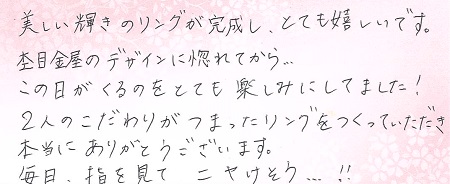 美しい輝きのリングが完成し、とても嬉しいです。
杢目金屋のデザインに惚れてから…
この日がくるのをとても楽しみにしてました!
2人のこだわりがつまったリングをつくっていただき
本当にありがとうございます。
毎日、指を見てニヤけそう…!!